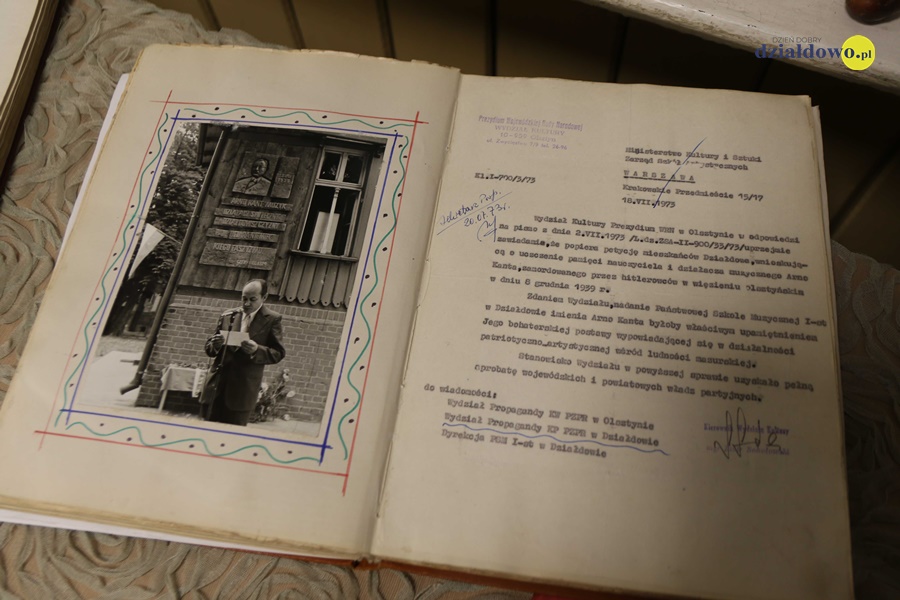 DZIEŃ DOBRY
działdowo.pl
Prezydium Wojewódzkiej Rady Narodowej
WYDZIAŁ KULTURY
Ministerstwo Kultury i Sztuki
Zarząd Szkół Artystycznych
WARSZAWA
Krakowskie Przedmieście 15/17
18.VII.1973
Kl.I-700/3/73
20.07.73r.
Wydział Kultury Prezydium WRN w Olsztynie w odpowiedzi
na pismo z dnia 2.VII.1973 /L.dz.ZSA-II-900/33/73/uprzejmie
zawiadamia,że popiera petycję mieszkańców Działdowa,wnioskują-
cą o uczczenie pamięci nauczyciela i działacza muzycznego Arno
Kanta,zamordowanego przez hitlerowców w więzieniu olsztyńskim
w dniu 8 grudnia 1939 r.
Zdaniem Wydziału,nadanie Państwowej Szkole Muzycznej I-st
w Działdowie imienia Arno Kanta byłoby właściwym upamiętnieniem
Jego bohaterskiej postawy wypowiadającej się w działalności
patriotyczno-artystycznej wśród ludności mazurskiej.
Stanowisko Wydziału w powyższej sprawie uzyskało pełną
aprobatę wojewódzkich i powiatowych władz partyjnych.
do wiadomości:
Wydział Propagandy KW PZPR w Olsztynie
Wydział Propagandy KP PZPR w Działdowie
Dyrekcja PSM I-st w Działdowie